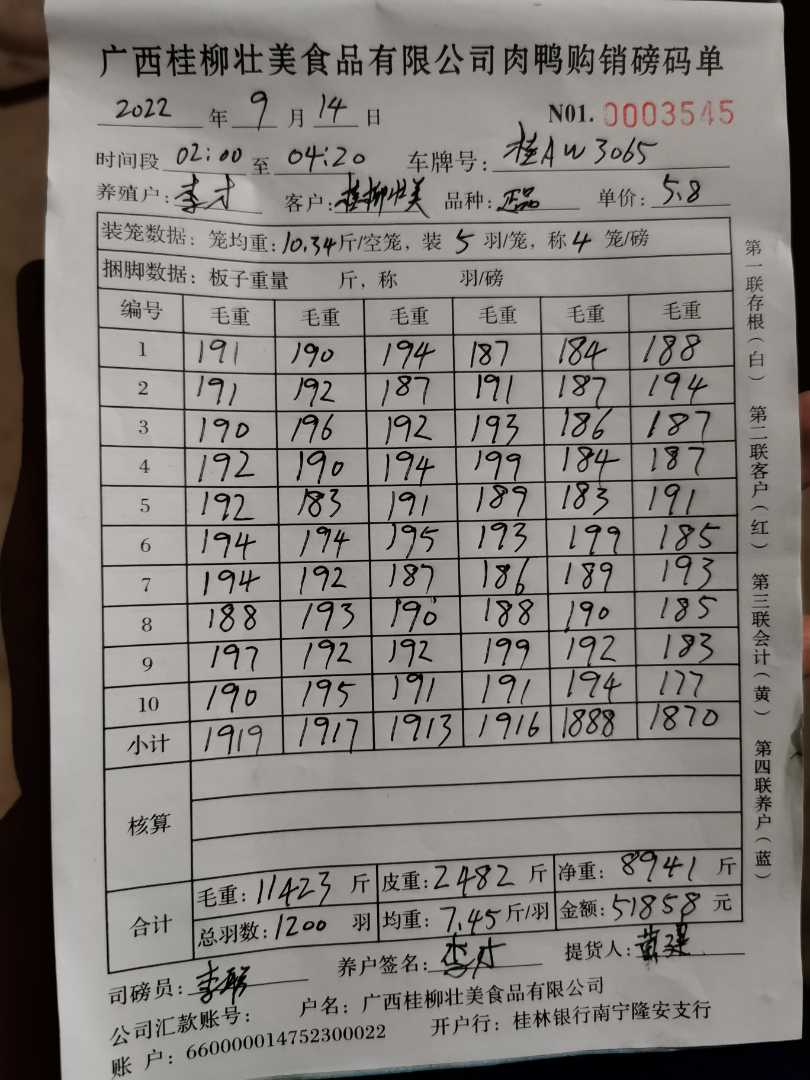 广西桂柳壮美食品有限公司肉鸭购销磅码单
2022 年 9 月 14 日 N01. 0003545
时间段 02:00 至 04:20 车牌号: 桂AW3065
养殖户: 李才 客户: 桂柳壮美 品种: 正品 单价: 5.8
装笼数据: 笼均重: 10.34斤/空笼, 装 5 羽/笼, 称 4 笼/磅
捆脚数据: 板子重量 斤, 称 羽/磅
编号 毛重 毛重 毛重 毛重 毛重 毛重
1 191 190 194 187 184 188
2 191 192 187 191 187 194
3 190 196 192 193 186 187
4 192 190 194 199 184 187
5 192 183 191 189 183 191
6 194 194 195 193 199 185
7 194 192 187 186 189 193
8 188 193 190 188 190 185
9 197 192 192 199 192 183
10 190 195 191 191 194 177
小计 1919 1917 1913 1916 1888 1870
核算
合计 毛重: 11423 斤 皮重: 2482 斤 净重: 8941 斤
总羽数: 1200 羽 均重: 7.45斤/羽 金额: 51858 元
司磅员: 李 养户签名: 李才 提货人: 黄
公司汇款账号: 户名: 广西桂柳壮美食品有限公司
账 户: 660000014752300022 开户行: 桂林银行南宁隆安支行
第一联存根(白) 第二联客户(红) 第三联会计(黄) 第四联养户(蓝)